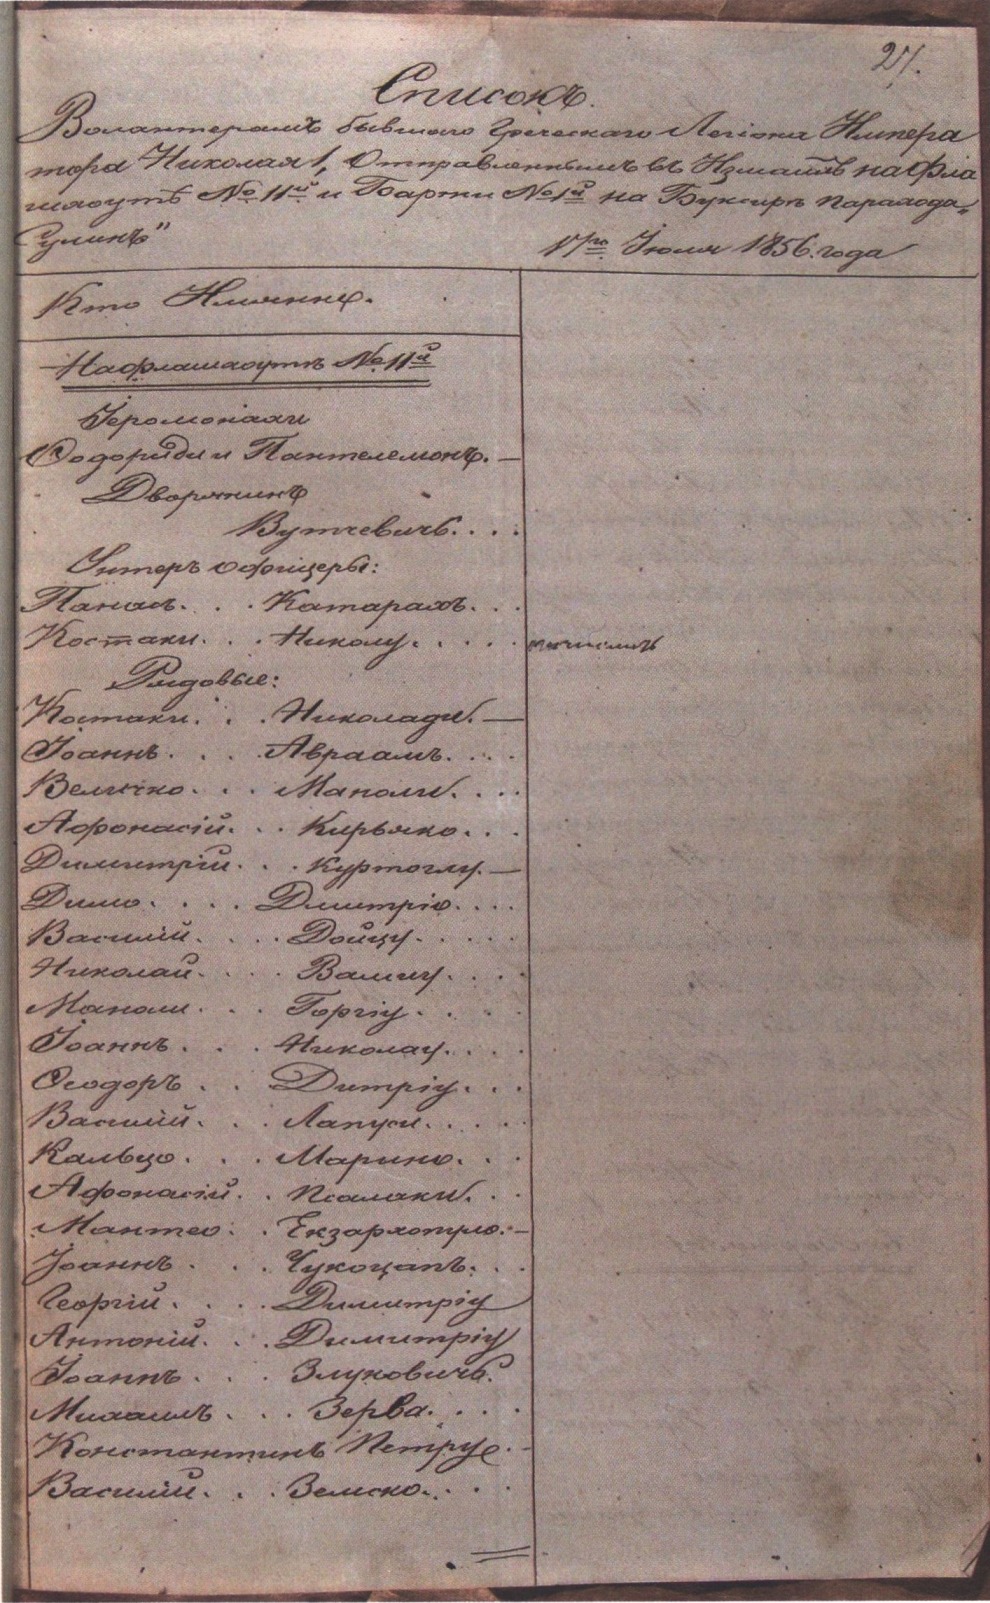 27.
Списокъ.
Волантерамъ бывшаго Греческаго Легіона Импера
тора Николая I, Отправленнымъ въ Измаилъ на Фла
шхоутѣ № 11й и Баржи № 1й на Буксирѣ парахода „
Сулинъ"
17го Іюля 1856. года
Кто Имянно.
На флашхоутѣ № 11й
Іеромонахи
Ѳодориди и Пантелемонъ.
Дворянинъ
Вутчевичъ. . . .
Унтеръ офицеры:
Панасъ. . . Катарахъ. . .
Костаки. . . Николу. . . . .
Рядовые:
Костаки. . . Николади.
Іоаннъ. . . . Авраамъ. . . .
Величко. . . Маноли. . . .
Афонасій. . . Кирьяко. . .
Димитрій. . . Куртоглу.
Димо. . . . Дмитріо. . . .
Василій. . . . Дойцу. . . . .
Николай. . . . Валиу. . . .
Маноли. . . Горгіу. . . .
Іоаннъ. . . . Николау. . . .
Ѳеодоръ. . . Дитріу. . .
Василій. . . Лапуси. . . . .
Кальцо. . . . Марино. . .
Афонасій. . . Псалаки. . .
Мантео. . . Екзархопуло.
Іоаннъ. . . . Чукоцапъ. . .
Георгій. . . . Димитріу
Антоній. . . Димитріу
Іоаннъ. . . . Злуковичъ.
Михаилъ. . . . Зерва. . . .
Константинъ Петруе.
Василій. . . . Земско. . . .